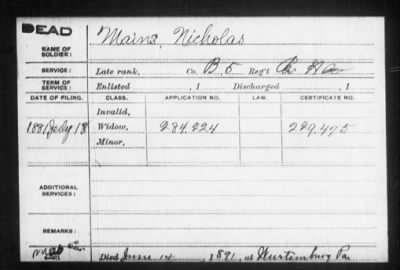 DEAD
NAME OF SOLDIER: Mains, Nicholas
SERVICE: Late rank, Co. B, 5 Reg't
TERM OF SERVICE: Enlisted , 1 Discharged , 1
DATE OF FILING. CLASS. APPLICATION NO. LAW. CERTIFICATE NO.
Invalid,
1881 July 18 Widow, 284.224 229.475
Minor,
ADDITIONAL SERVICES:
REMARKS:
Died June 14, 1891, at Wurtemburg Pa